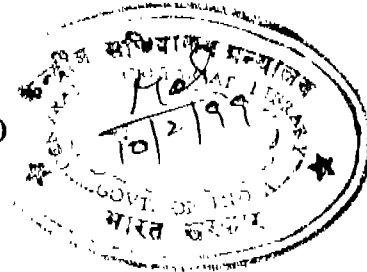 केन्द्रीय सचिवालय ग्रन्थालय
CENTRAL SECRETARIAT LIBRARY
10/2/99
GOVT. OF INDIA
भारत सरकार
)